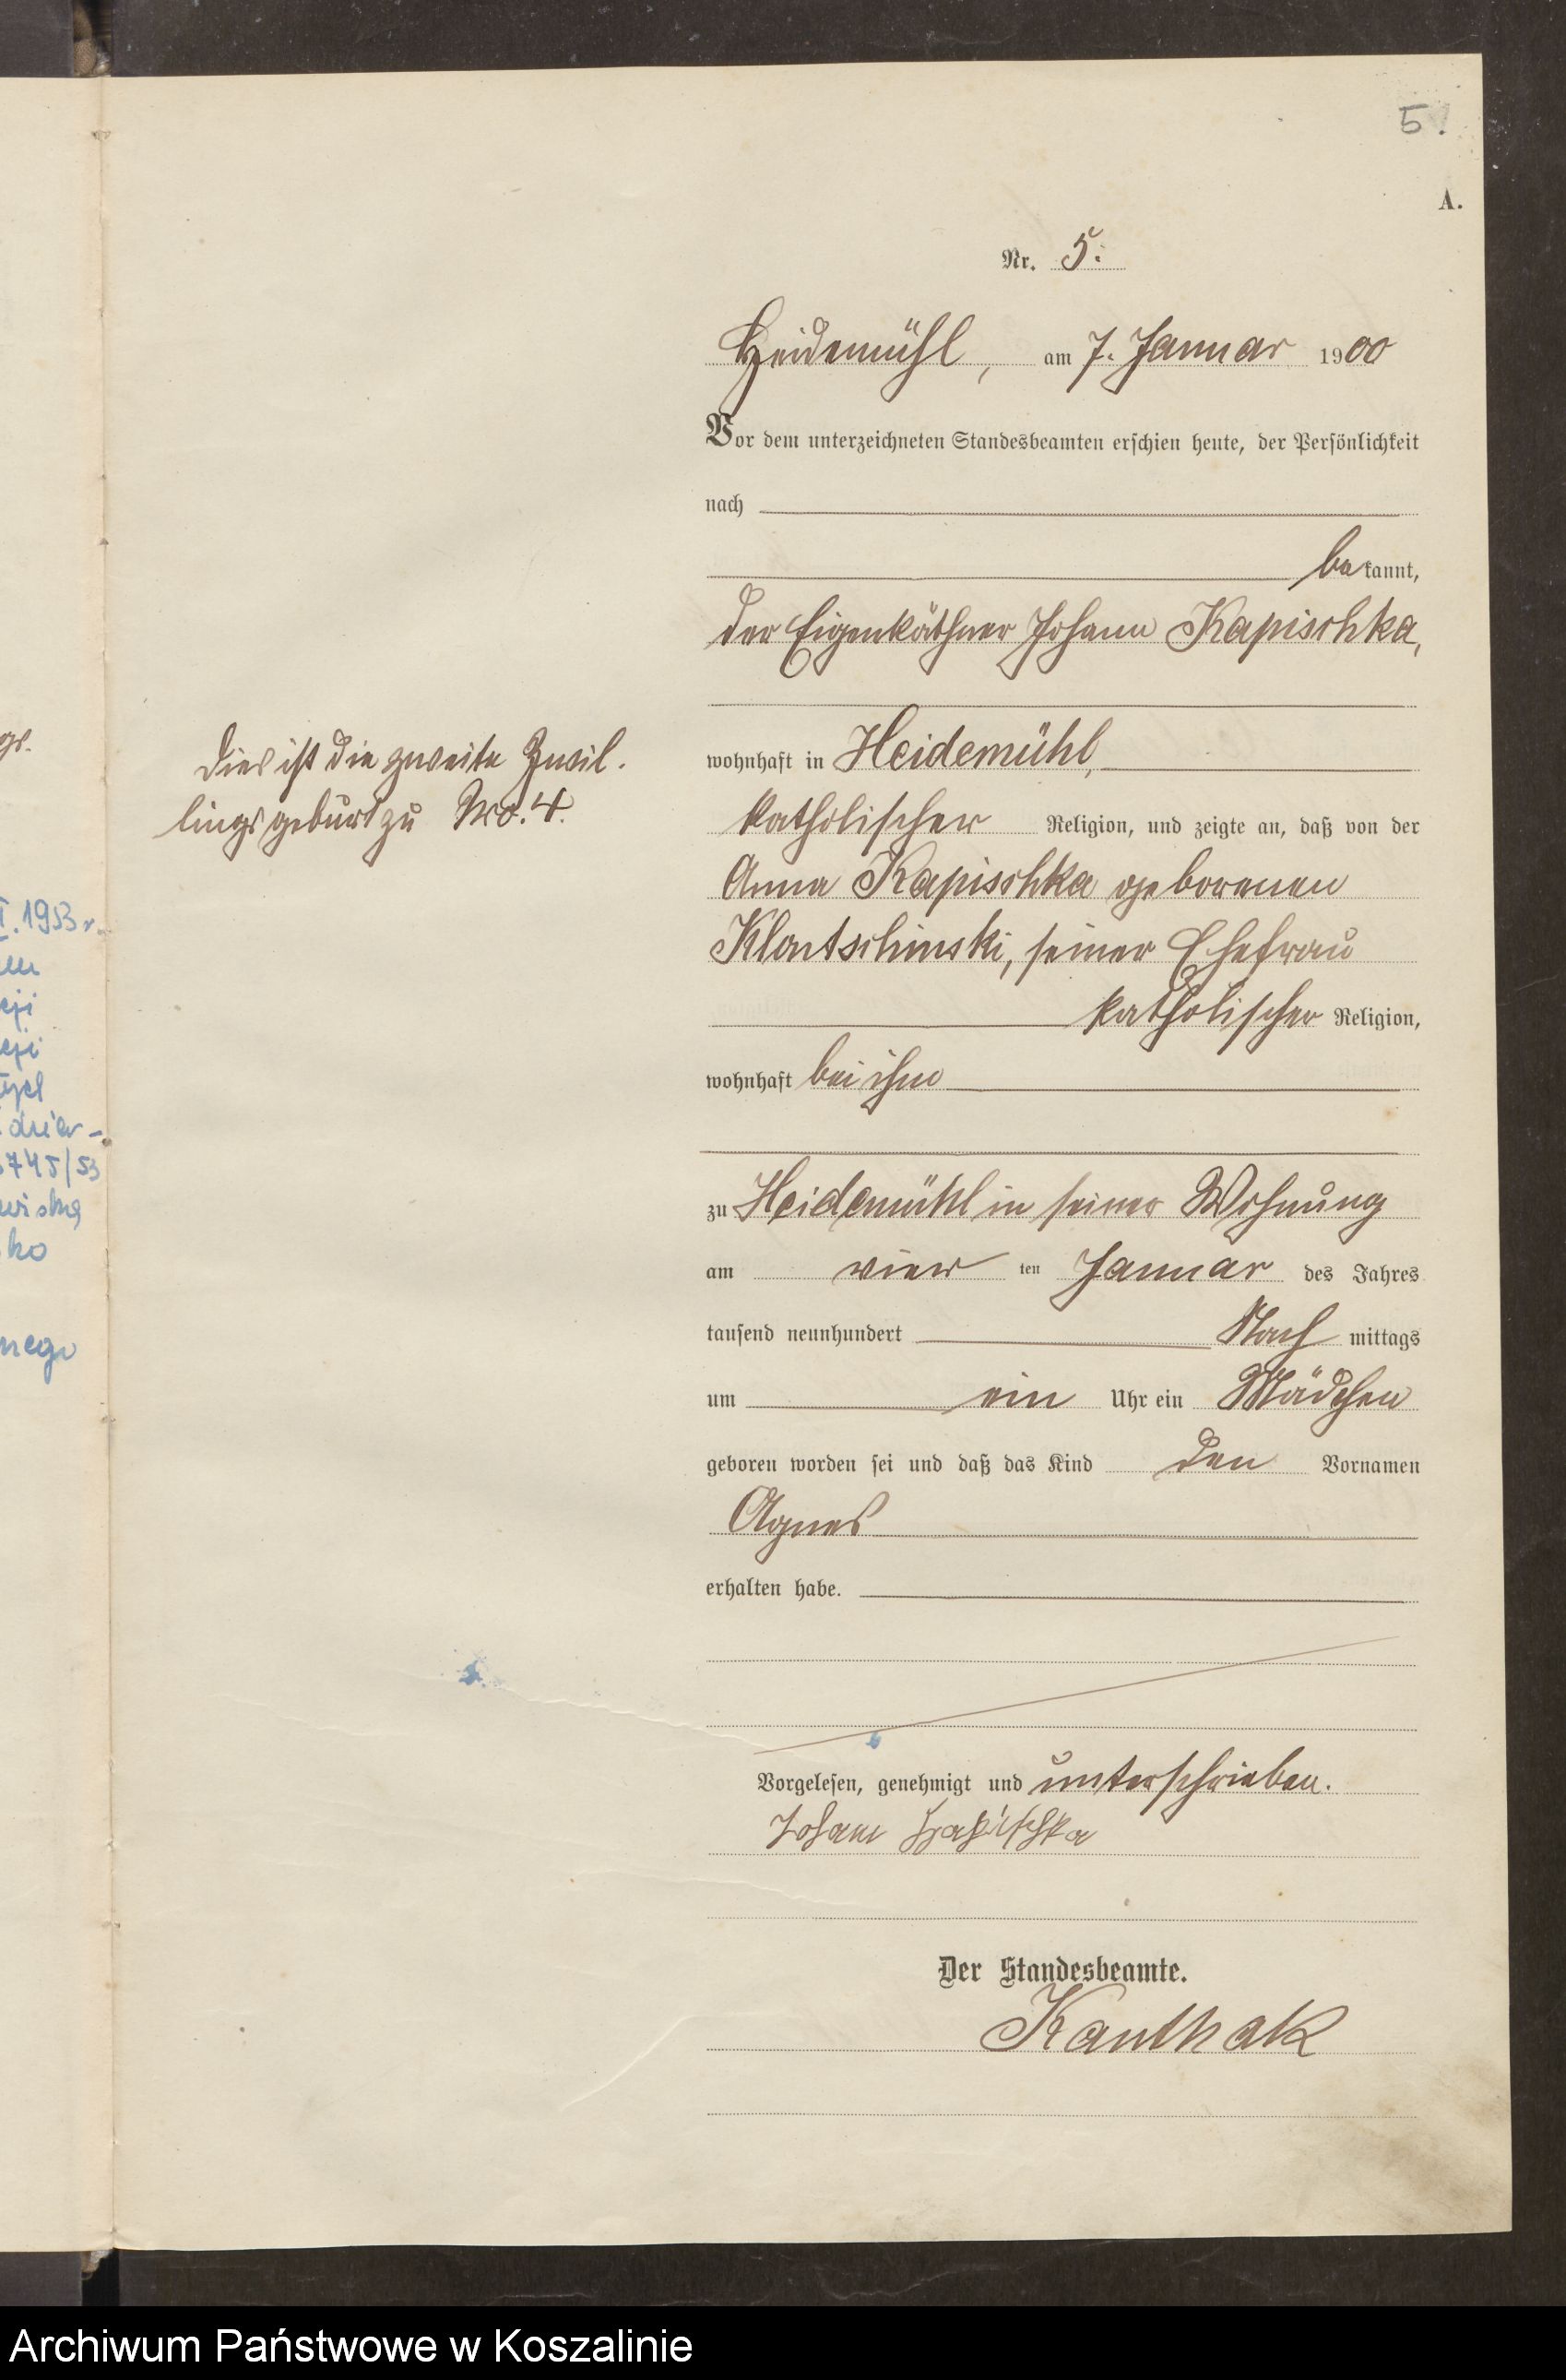 5.
A.
Nr. 5.
Heidemühl, am 7. Januar 1900
Vor dem unterzeichneten Standesbeamten erschien heute, der Persönlichkeit
nach
bekannt,
der Eigenkäthner Johann Kapischka,
wohnhaft in Heidemühl,
katholischer Religion, und zeigte an, daß von der
Anna Kapischka geborenen
Klontschinski, seiner Ehefrau
katholischer Religion,
wohnhaft bei ihm
zu Heidemühl in seiner Wohnung
am vier ten Januar des Jahres
tausend neunhundert Nach mittags
um ein Uhr ein Mädchen
geboren worden sei und daß das Kind den Vornamen
Agnes
erhalten habe.
Vorgelesen, genehmigt und unterschrieben.
Johann Kapischka
Der Standesbeamte.
Kanthak
Dies ist die zweite Zwil-
lingsgeburt zu Nro. 4.
I. 1953 r.
745/53
ko
nego
Archiwum Państwowe w Koszalinie